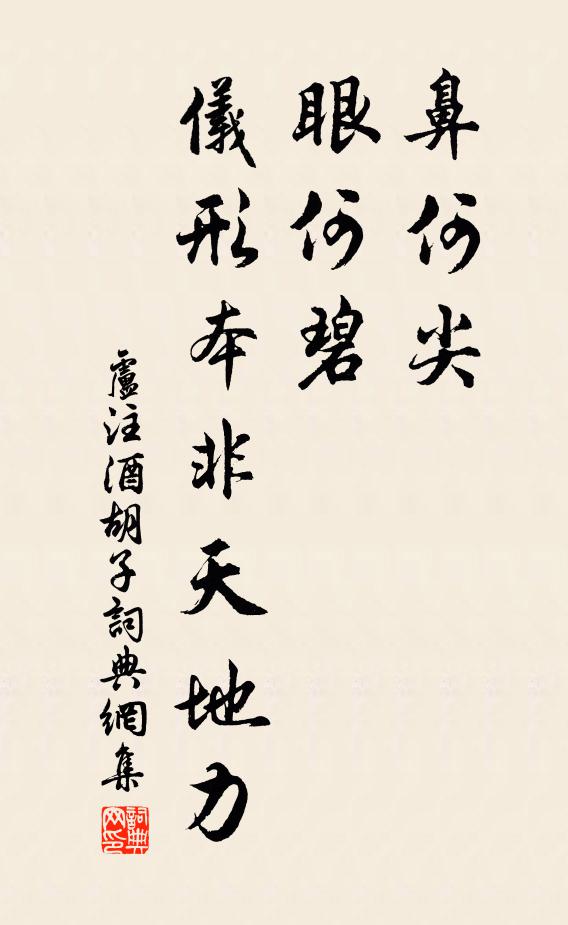 鼻何尖
眼何碧
儀形本非天地力
盧注酒胡子詞典網集
詞典网印